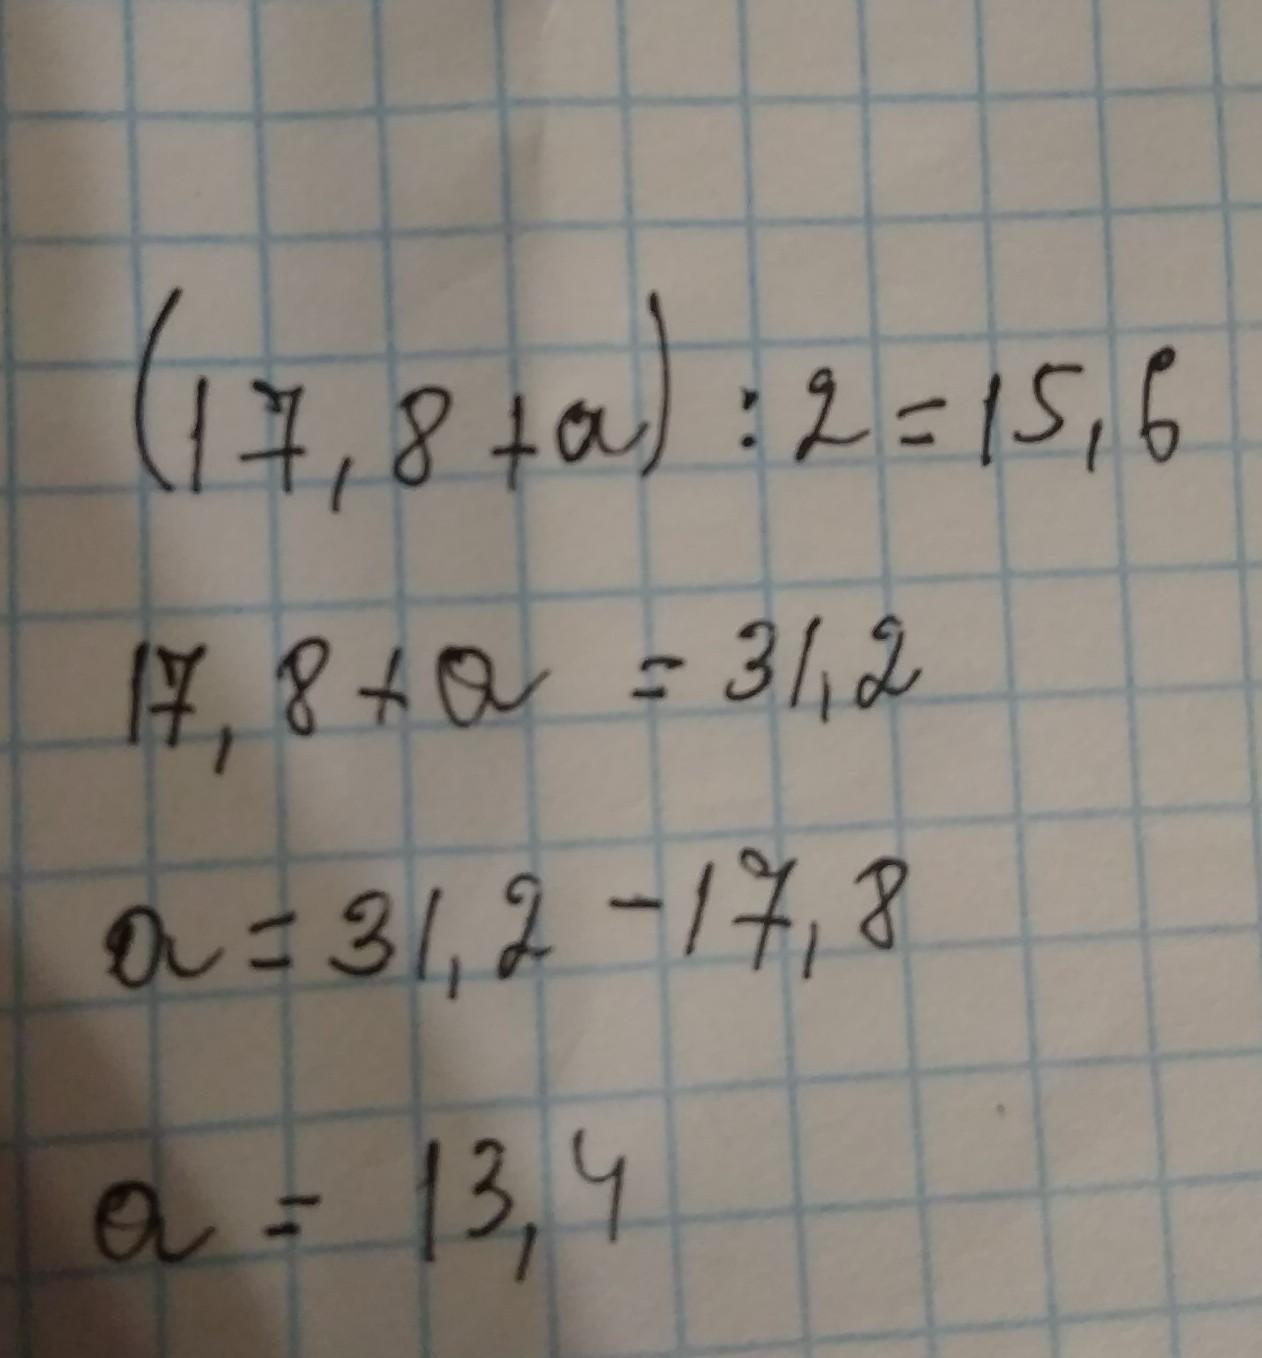 (17,8+a):2=15,6
17,8+a=31,2
a=31,2-17,8
a=13,4